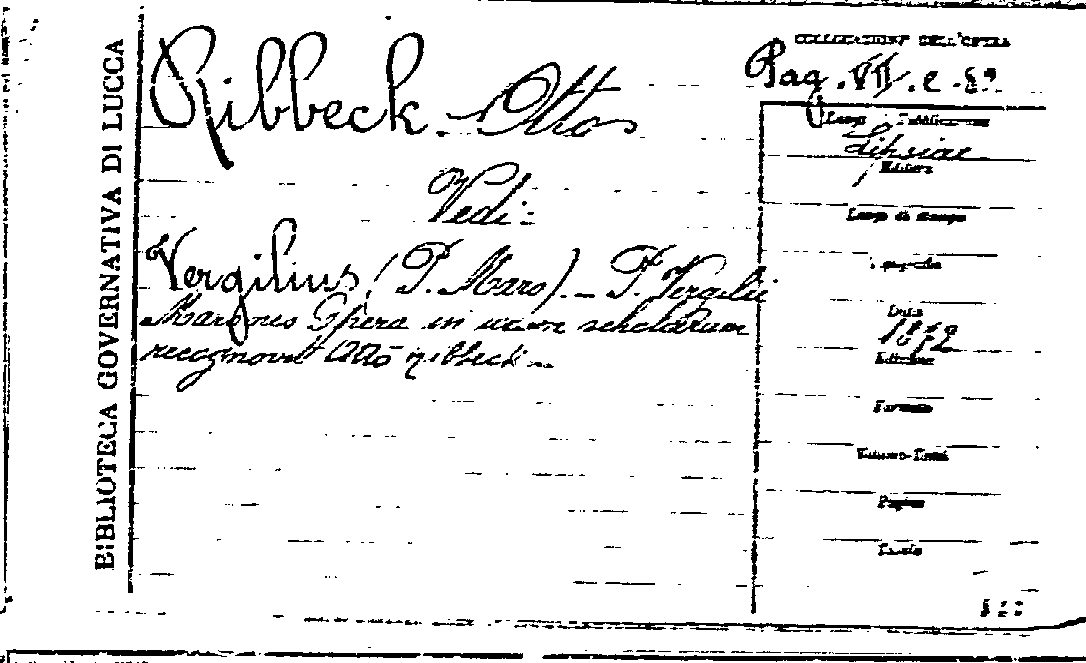 BIBLIOTECA GOVERNATIVA DI LUCCA
Ribbeck - Otto
Vedi:
Vergilius (P. Maro). - P. Vergilii
Maronis Opera in usum scholarum
recognovit Otto Ribbeck -
COLLOCAZIONE DELL'OPERA
Pag. VII. e.
Luogo Pubblicazione
Lipsiae
Editore
Luogo di stampa
Tipografia
Data
1872
Edizione
Formato
Volumi-Tomi
Pagine
Tavole